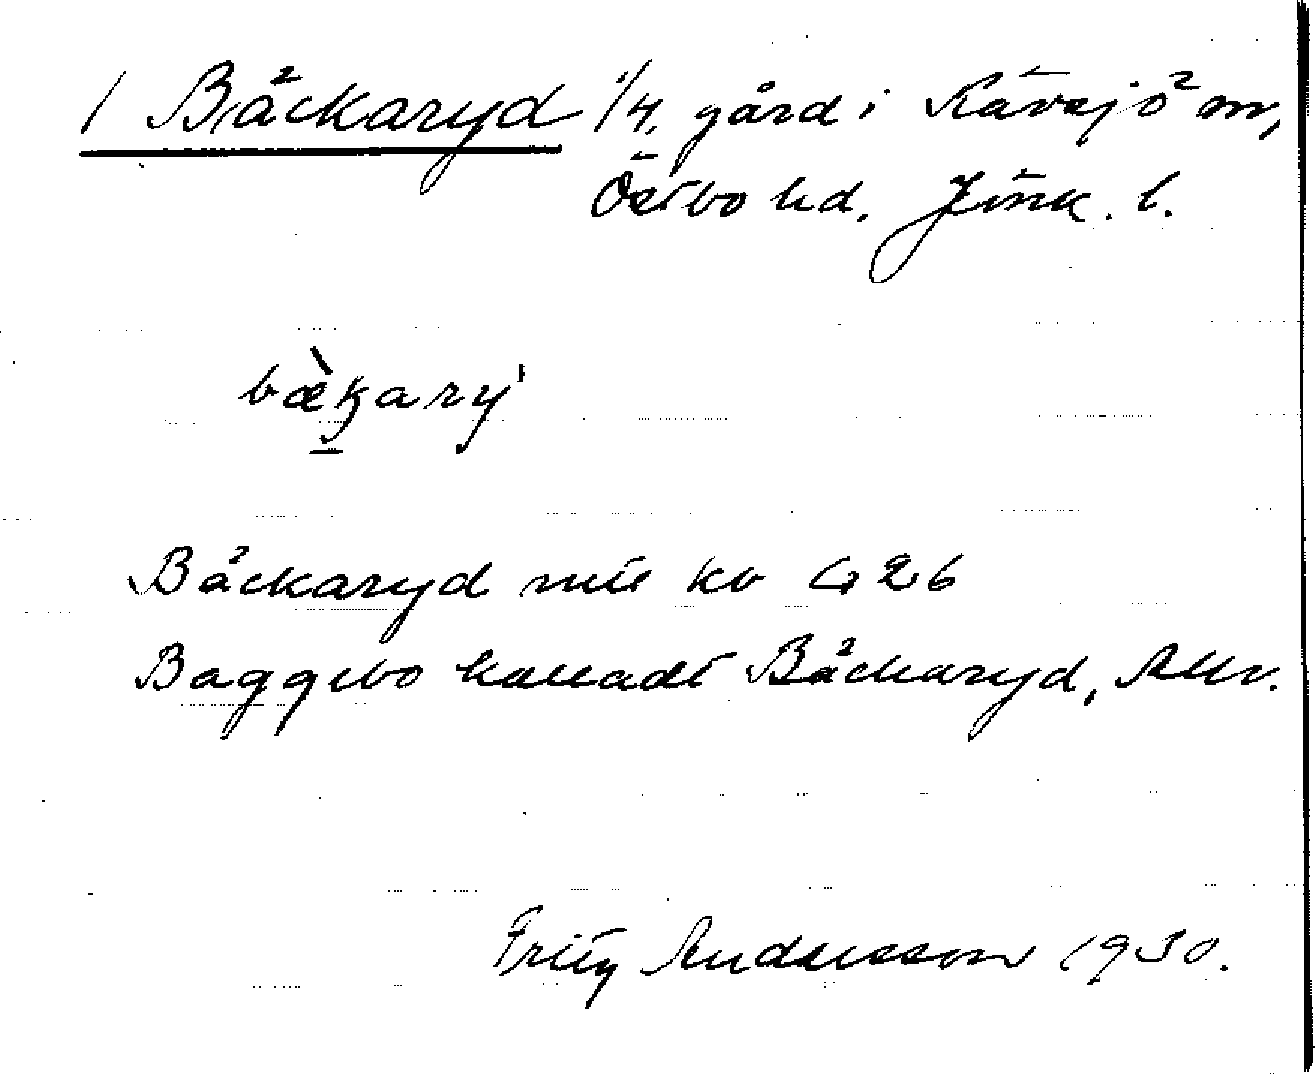 1 Bäckaryd 1/4 gård i Kävsjö sn,
Östbo hd. Jönk. l.
bæ̀kary
Bäckaryd mtl kv G 26
Baggebo kalladt Bäckaryd,
Fritz Andersson 1930.